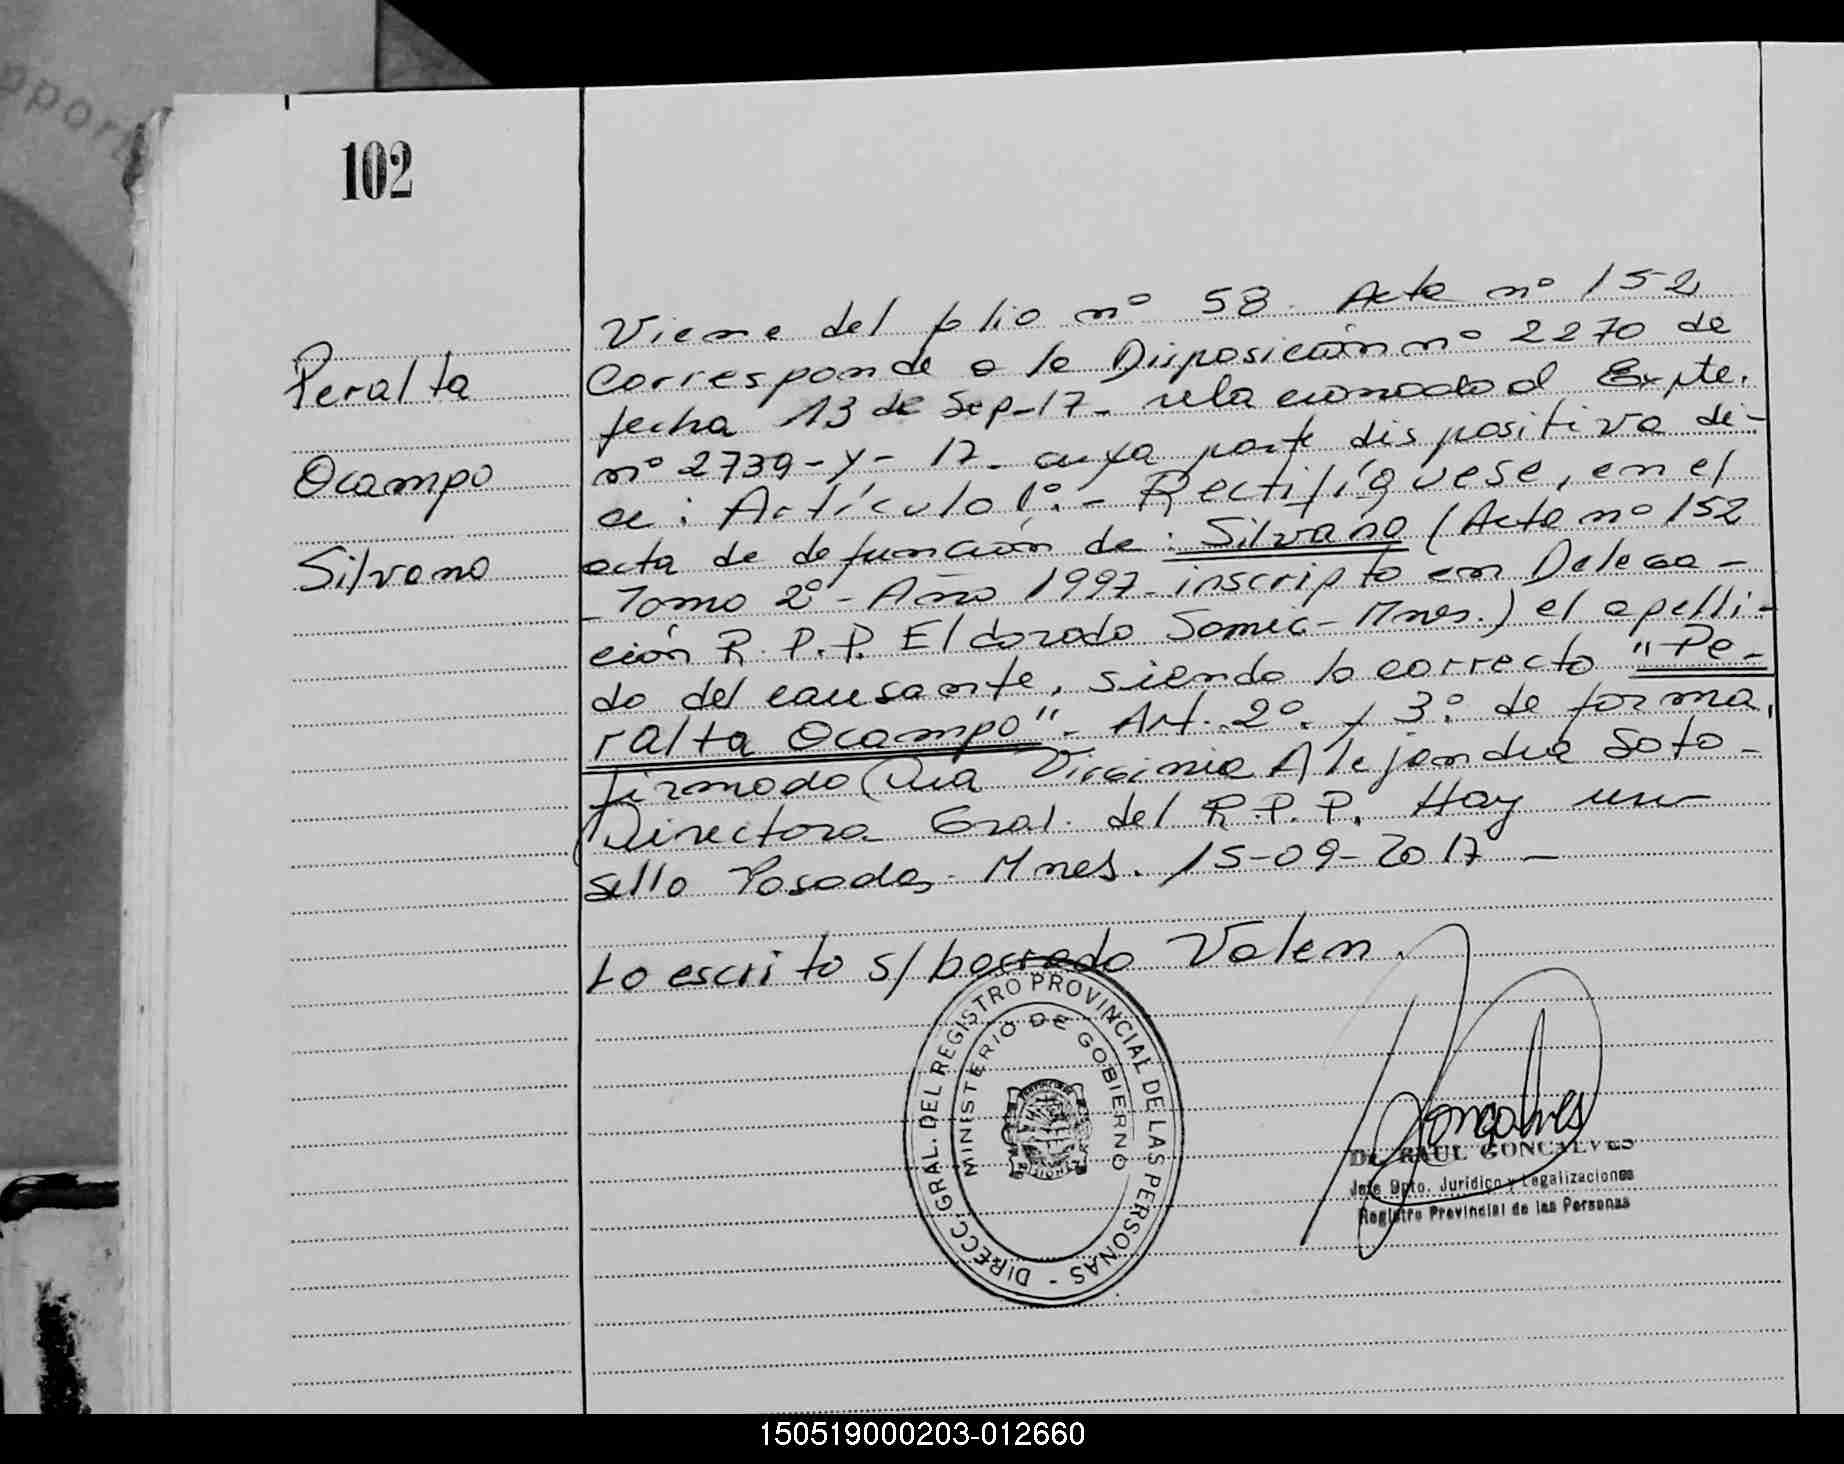 102
Peralta
Ocampo
Silvano
Viene del folio nº 58. Acta nº 152
Corresponde a la Disposición nº 2270 de
fecha 13 de Sep-17- relacionado al Expte.
nº 2739-Y-17- cuya parte dispositiva di-
ce: Artículo 1º.- Rectifíquese, en el
acta de defunción de: Silvano (Acta nº 152
-Tomo 2º- Año 1997- inscripto en Delega-
ción R.P.P. Eldorado Mnes.) el apelli-
do del causante, siendo lo correcto "Pe-
ralta Ocampo". Art. 2º. y 3º. de forma,
firmado Dra Virginia Alejandra Soto-
Directora Gral. del R.P.P. Hay un
sello Posadas. Mnes. 15-09-2017-
Lo escrito s/borrado Valen.
DIRECC. GRAL. DEL REGISTRO PROVINCIAL DE LAS PERSONAS -
MINISTERIO DE GOBIERNO
Gonçalves
Dr. RAUL GONCALVES
Jefe Dpto. Jurídico y Legalizaciones
Registro Provincial de las Personas
150519000203-012660